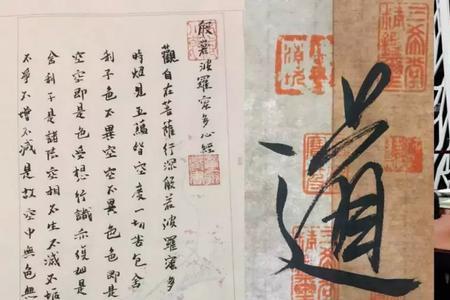 般若波羅蜜多心經
觀自在菩薩行深般若波羅蜜多
時照見五蘊皆空度一切苦厄舍
利子色不異空空不異色色即是
空空即是色受想行識亦復如是
舍利子是諸法空相不生不滅不垢
不淨不增不減是故空中無色無
道
三希堂精鑑璽